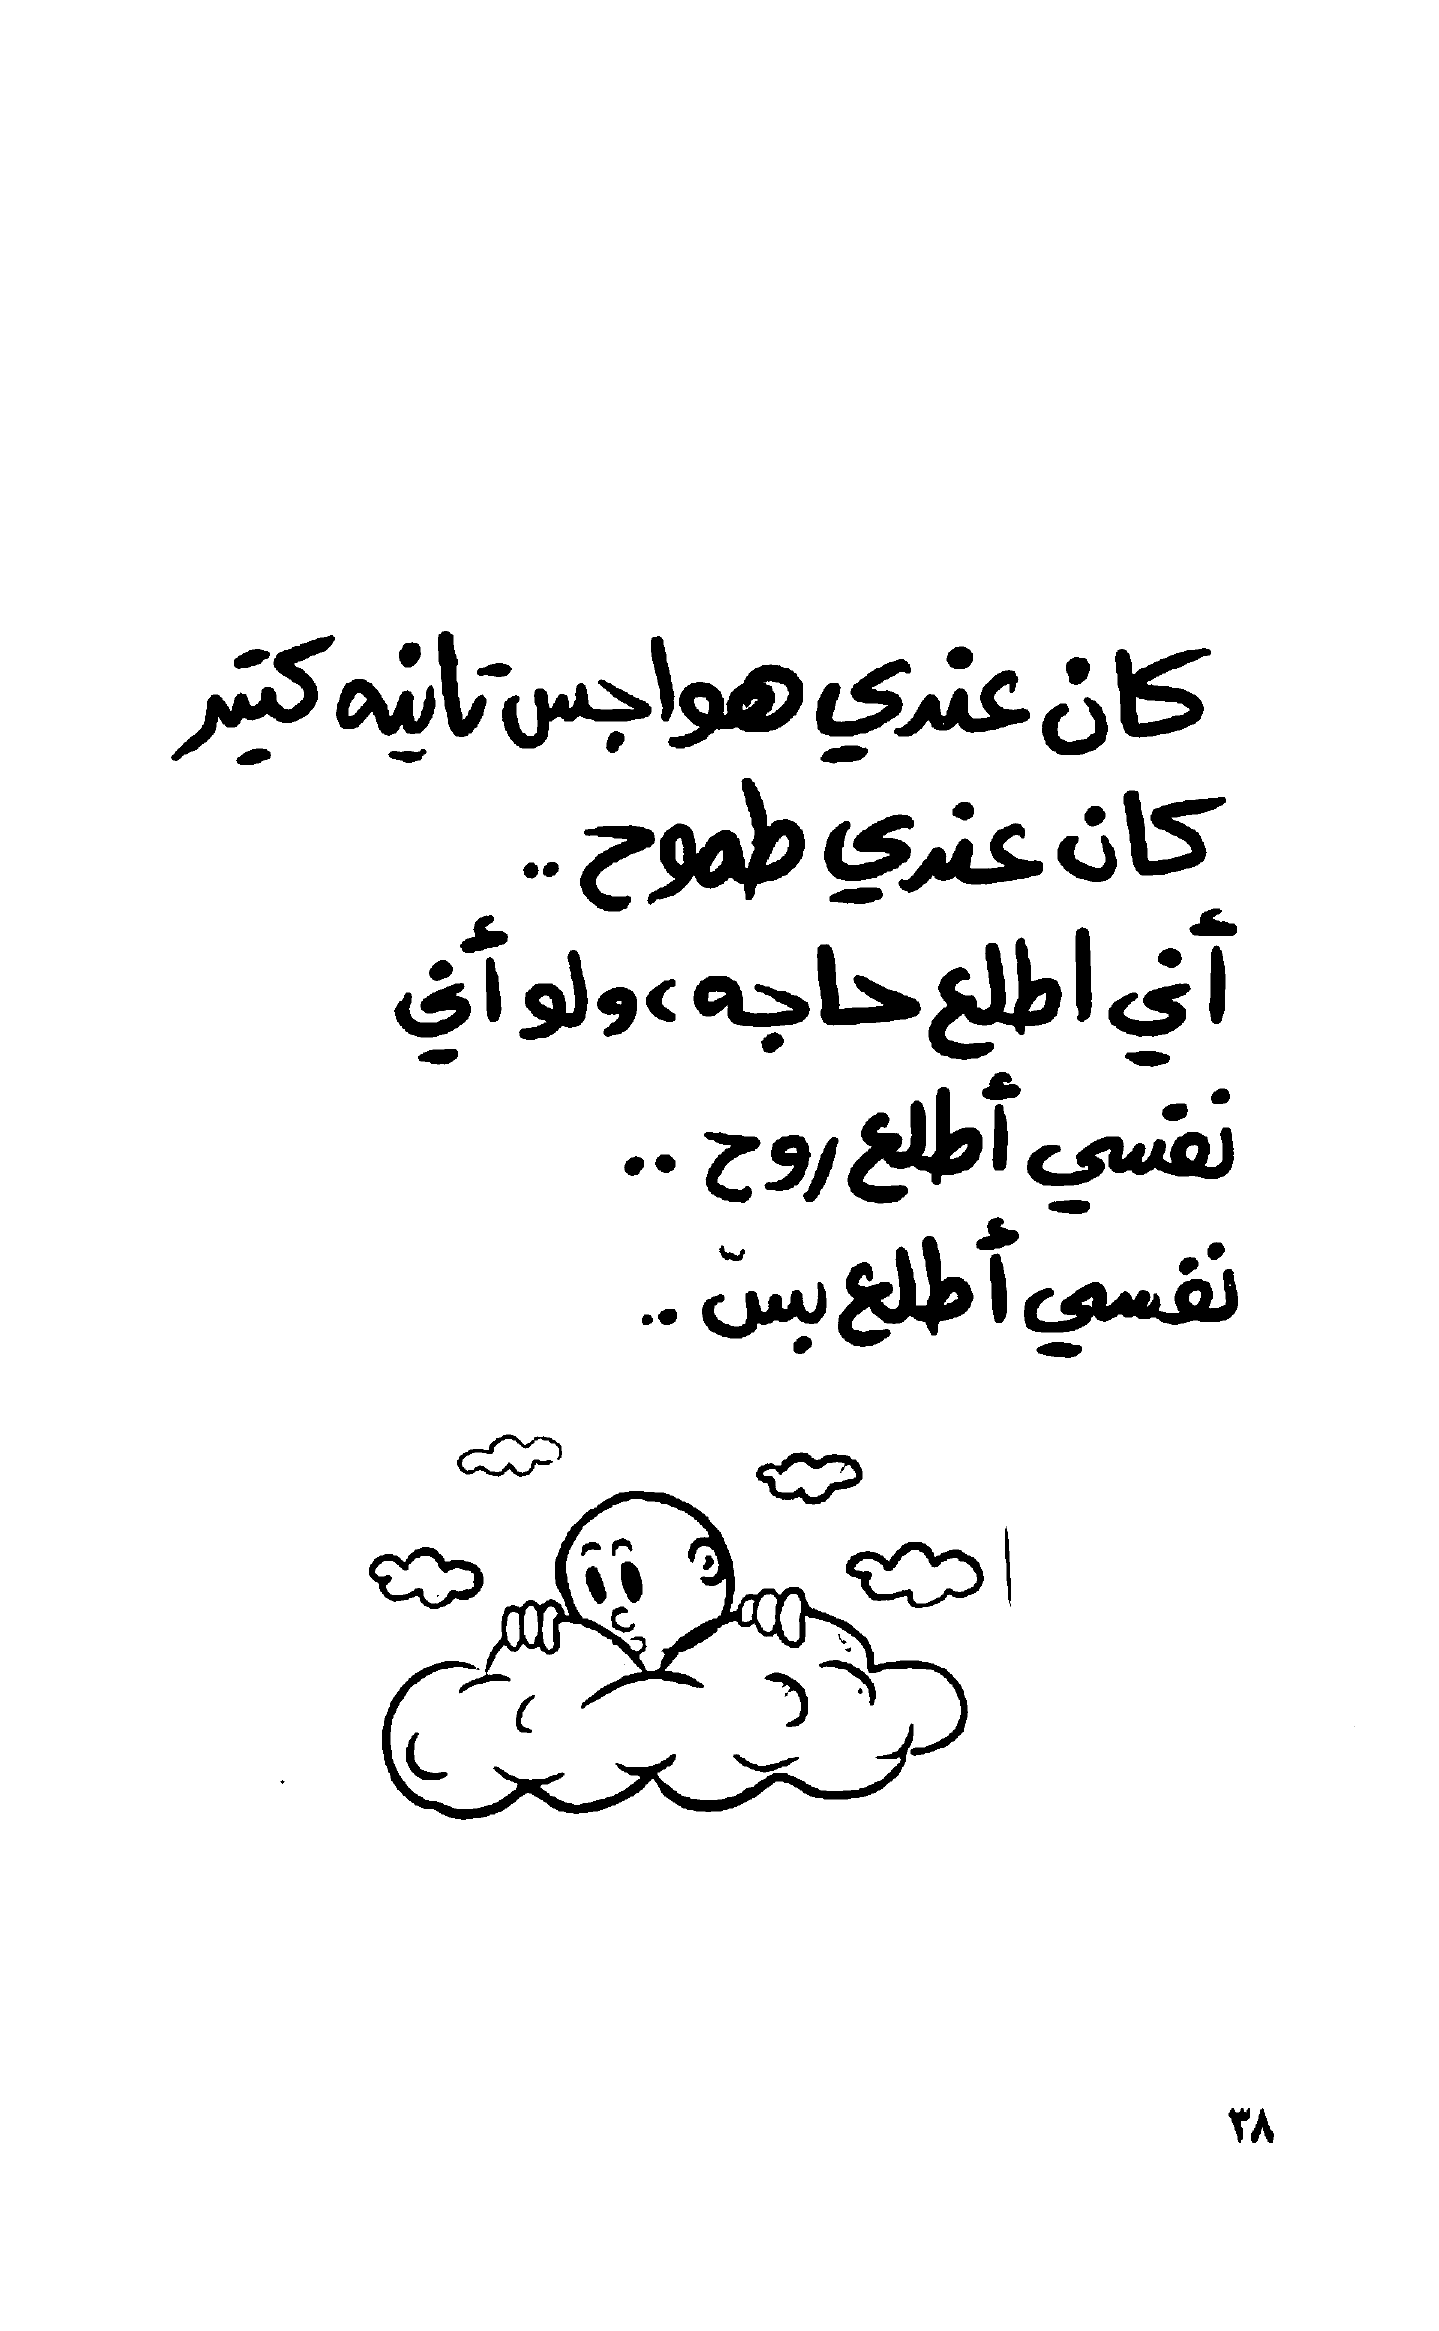 كان عندي هواجس تانيه كتير
كان عندي طموح ..
أني اطلع حاجه، ولو أني
نفسي أطلع روح ..
نفسي أطلع بسّ ..
٣٨